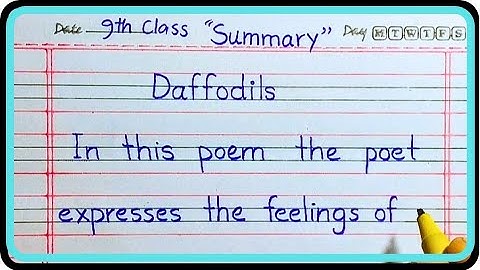 Date 9th Class "Summary" Day M T W T F S
Daffodils
In this poem the poet
expresses the feelings of